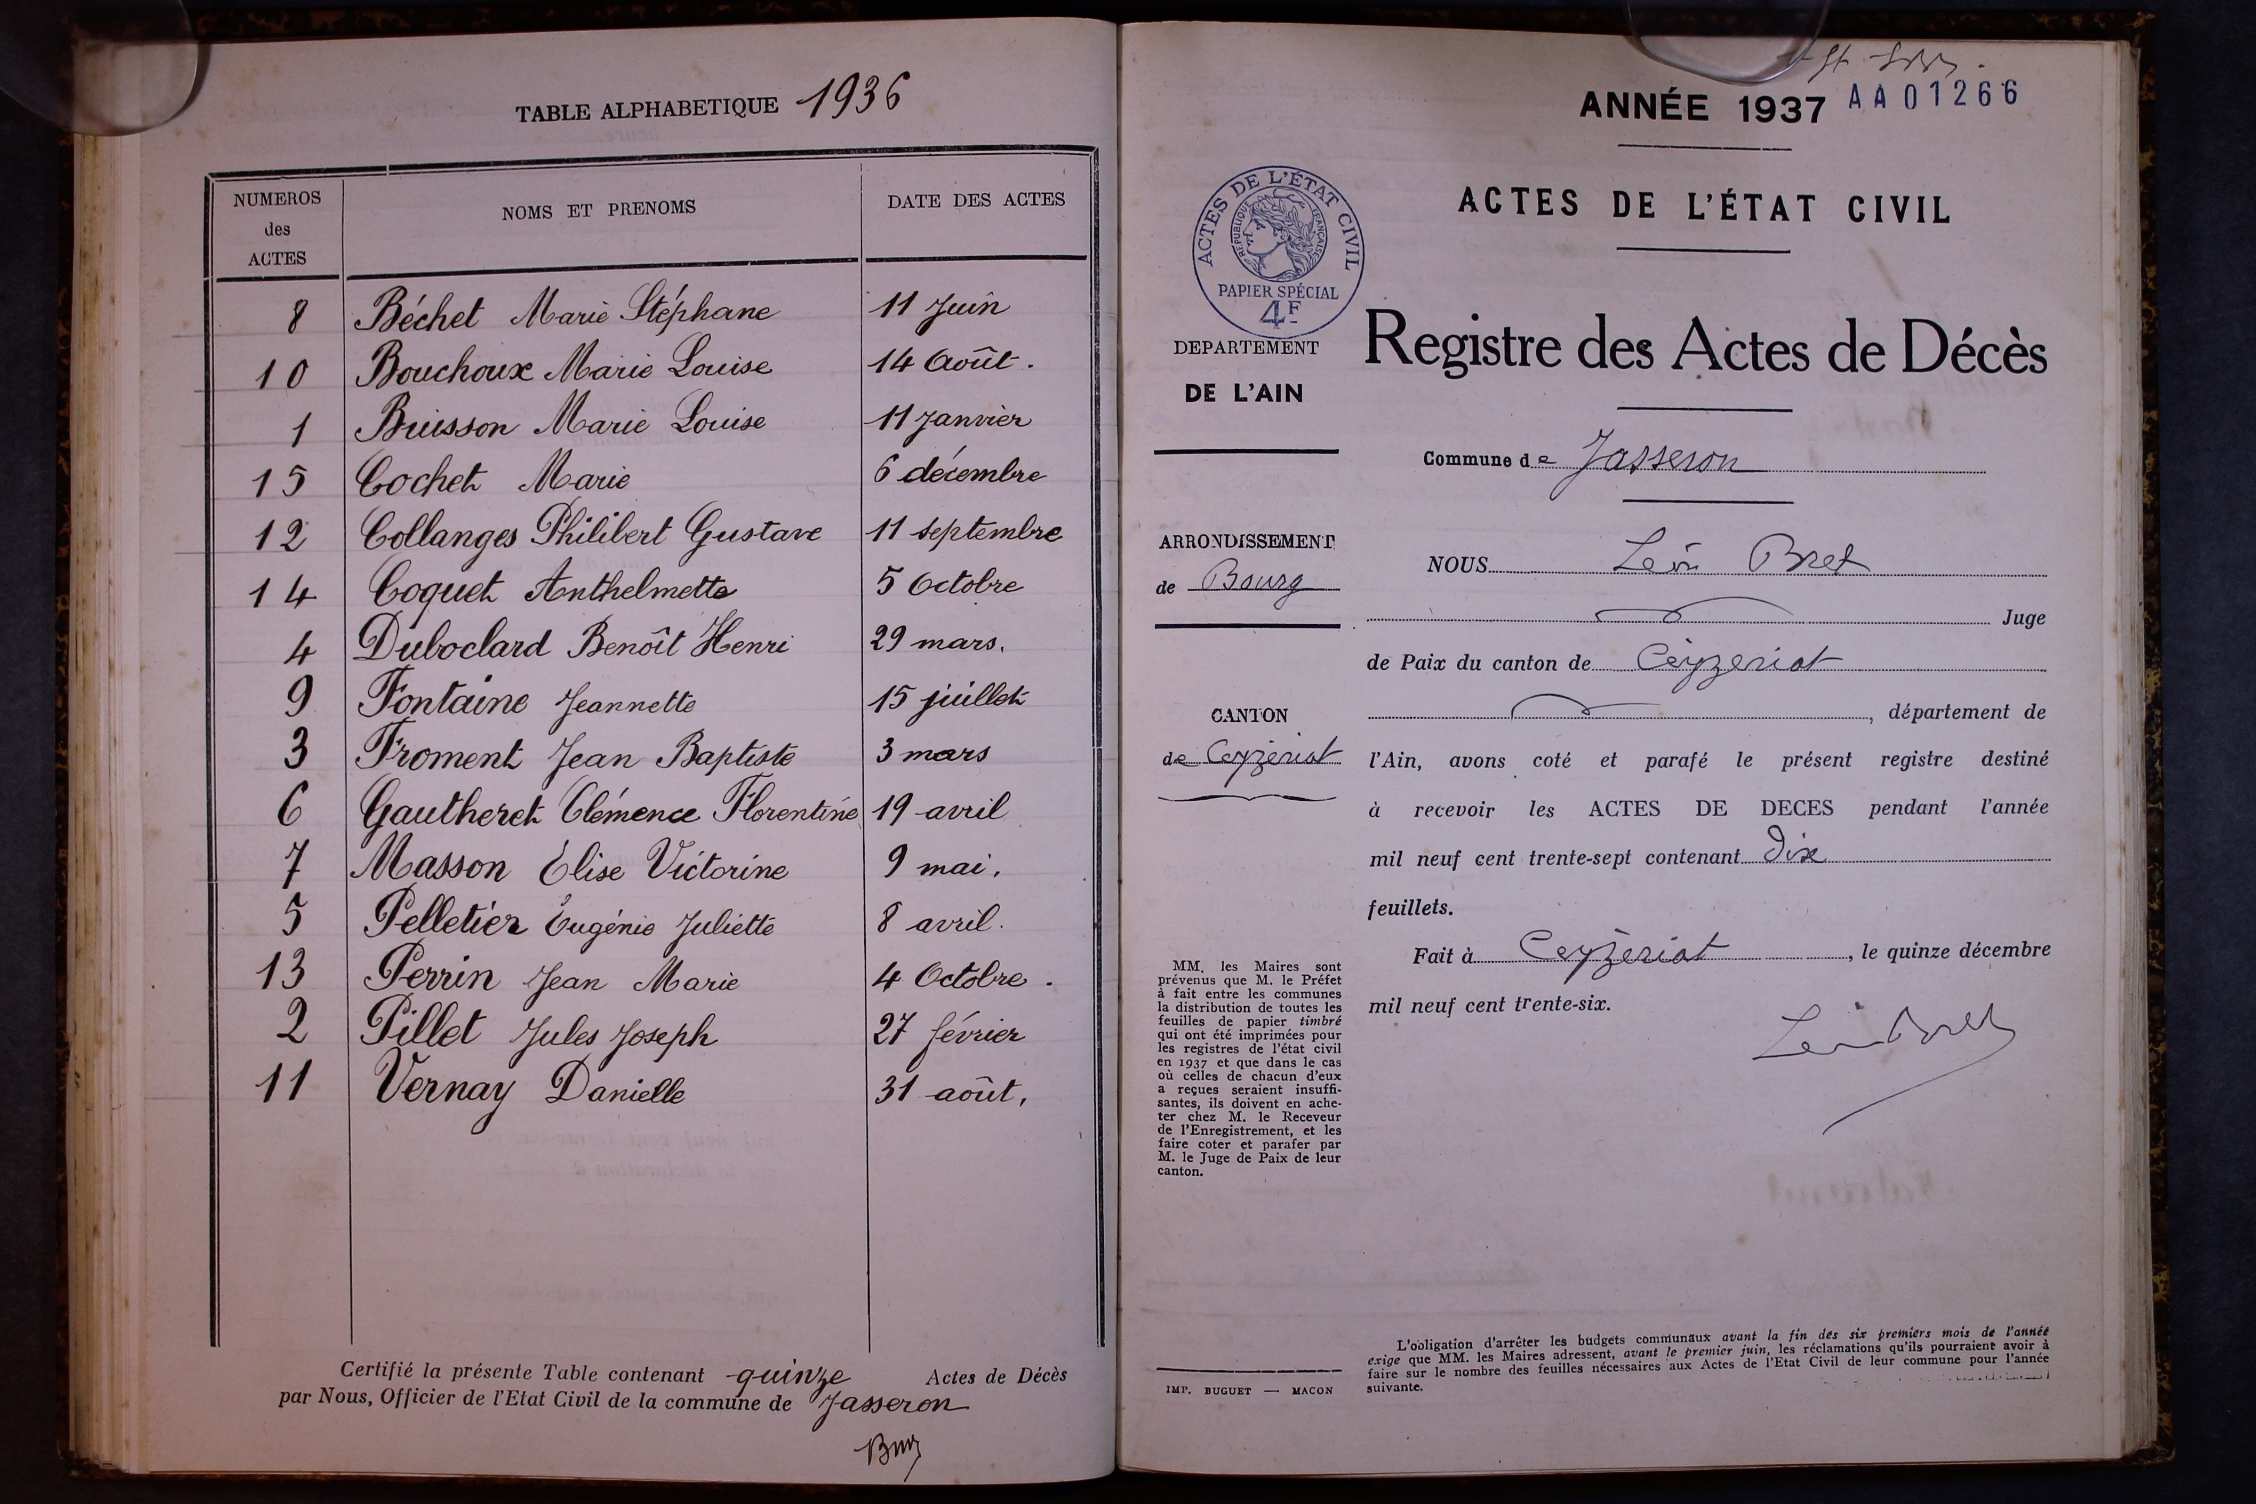 TABLE ALPHABETIQUE 1936
NUMEROS des ACTES NOMS ET PRENOMS DATE DES ACTES
8 Béchet Marie Stéphane 11 Juin
10 Bouchoux Marie Louise 14 Août.
1 Buisson Marie Louise 11 Janvier
15 Cochet Marie 6 décembre
12 Collanges Philibert Gustave 11 septembre
14 Coquet Anthelmette 5 Octobre
4 Duboclard Benoît Henri 29 mars.
9 Fontaine Jeannette 15 juillet
3 Froment Jean Baptiste 3 mars
6 Gautheret Clémence Florentine 19 avril
7 Masson Élise Victorine 9 mai.
5 Pelletier Eugénie Juliette 8 avril.
13 Perrin Jean Marie 4 Octobre.
2 Pillet Jules Joseph 27 février
11 Vernay Danielle 31 août,
Certifié la présente Table contenant quinze Actes de Décès
par Nous, Officier de l'Etat Civil de la commune de Jasseron
ANNÉE 1937 AA01266
ACTES DE L'ÉTAT CIVIL
ACTES DE L'ÉTAT CIVIL
RÉPUBLIQUE FRANÇAISE
PAPIER SPÉCIAL
4F
DEPARTEMENT
DE L'AIN
Registre des Actes de Décès
Commune de Jasseron
ARRONDISSEMENT
de Bourg
CANTON
de Ceyzériat
NOUS Léon Bret
Juge
de Paix du canton de Ceyzériat
, département de
l'Ain, avons coté et parafé le présent registre destiné
à recevoir les ACTES DE DECES pendant l'année
mil neuf cent trente-sept contenant Dix
feuillets.
Fait à Ceyzériat, le quinze décembre
mil neuf cent trente-six.
Léon Bret
MM. les Maires sont
prévenus que M. le Préfet
à fait entre les communes
la distribution de toutes les
feuilles de papier timbré
qui ont été imprimées pour
les registres de l'état civil
en 1937 et que dans le cas
où celles de chacun d'eux
a reçues seraient insuffi-
santes, ils doivent en ache-
ter chez M. le Receveur
de l'Enregistrement, et les
faire coter et parafer par
M. le Juge de Paix de leur
canton.
IMP. BUGUET — MACON
L'obligation d'arrêter les budgets communaux avant la fin des six premiers mois de l'année
exige que MM. les Maires adressent, avant le premier juin, les réclamations qu'ils pourraient avoir à
faire sur le nombre des feuilles nécessaires aux Actes de l'Etat Civil de leur commune pour l'année
suivante.